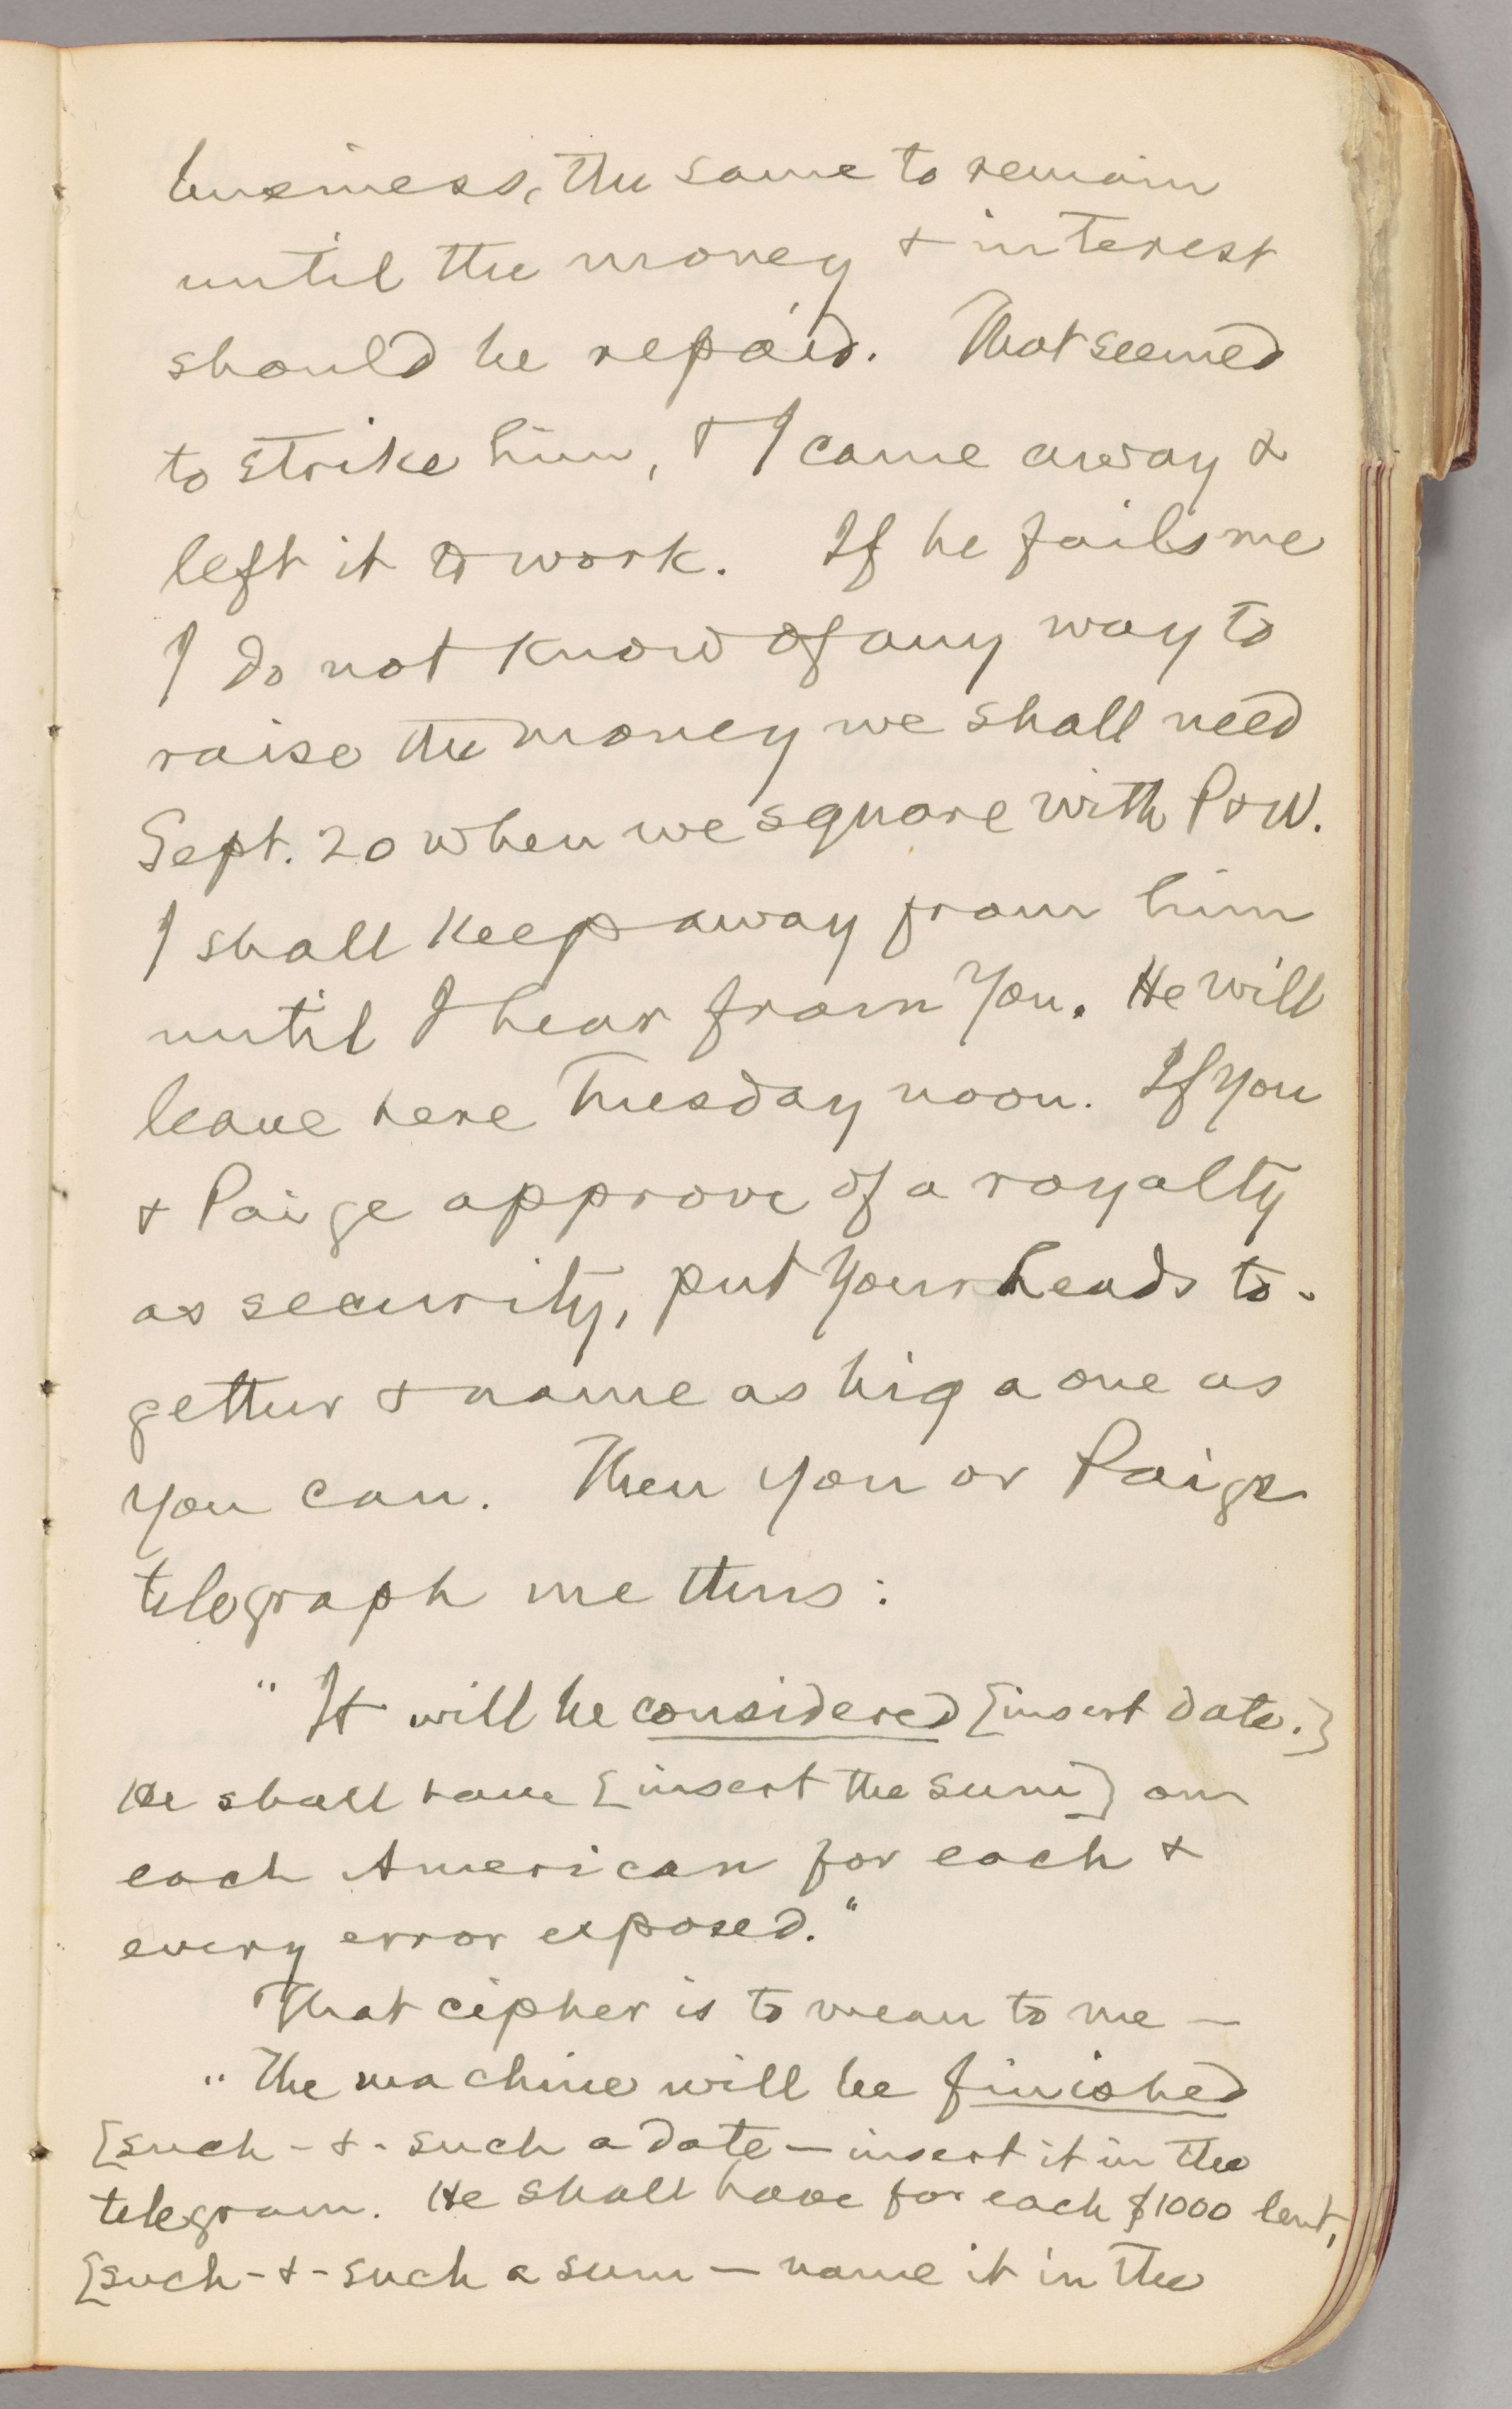 business, the same to remain
until the money & interest
should be repaid. That seemed
to strike him, & I came away &
left it to work. If he fails me
I do not know of any way to
raise the money we shall need
Sept. 20 when we square with P & W.
I shall keep away from him
until I hear from you. He will
leave here Tuesday noon. If you
& Paige approve of a royalty
as security, put your heads to-
gether & name as big a one as
you can. Then you or Paige
telegraph me thus:
"It will be considered [insert date.]
He shall have [insert the sum] on
each American for each &
every error exposed."
That cipher is to mean to me —
"The machine will be finished
[such-&-such a date — insert it in the
telegram. He shall have for each $1000 lent,
[such-&-such a sum — name it in the